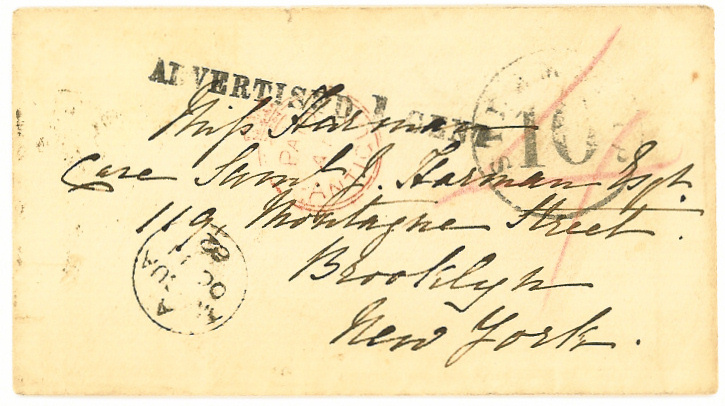 ADVERTISED 1 CENT
Miss Harman
Care Saml. J. Harman Esqr.
119 Montague Street.
Brooklyn
New York.
STEAM
10
PAID
OC